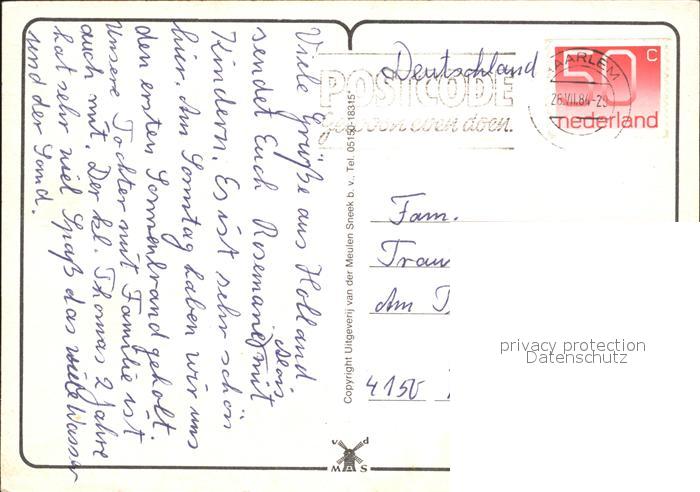 Viele Grüße aus Holland
sendet Euch Rosemarie, mit
Alois
Kindern. Es ist sehr schön
hier. Am Sonntag haben wir uns
den ersten Sonnenbrand geholt.
Unsere Tochter mit Familie ist
auch mit. Der kl. Thomas 2 Jahre
hat sehr viel Spaß das viele Wasser
und der Sand.
Deutschland
POSTCODE
gewoon even doen.
HAARLEM
26.VII.84-2
50 C
nederland
Fam.
Am
4150
Copyright Uitgeverij van der Meulen Sneek b.v., Tel. 05150-18315*
v d
M S
privacy protection
Datenschutz